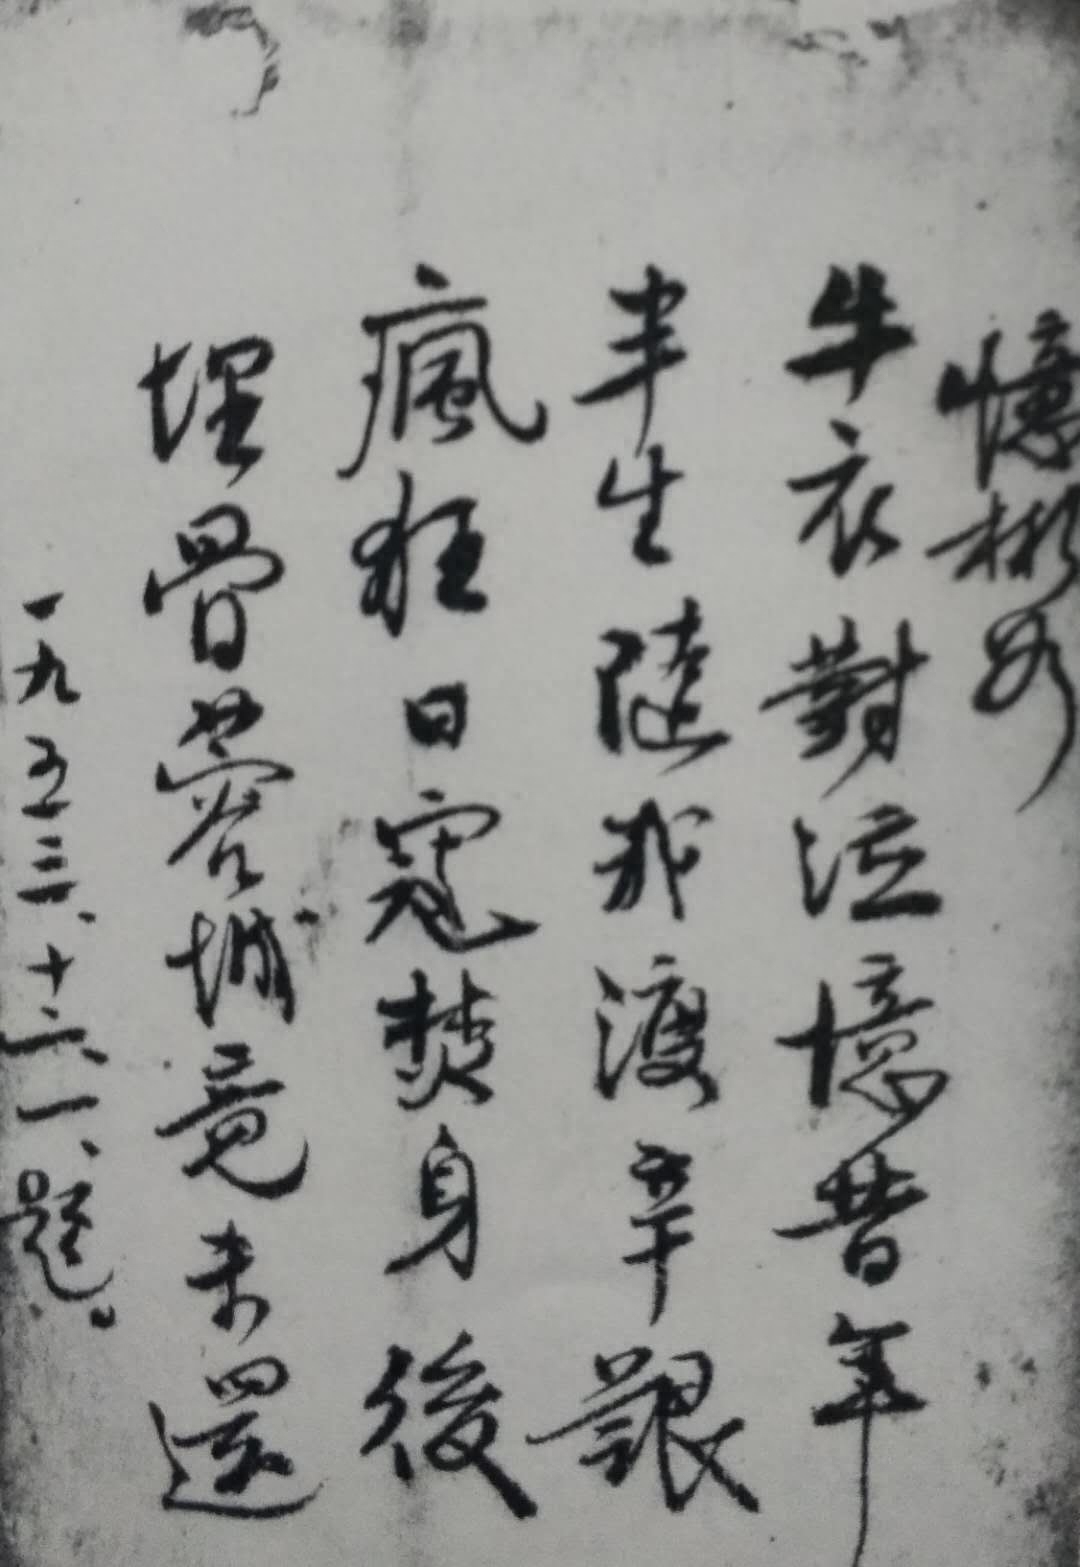 憶彬如
牛衣對泣憶昔年
半生隨我渡辛艱
瘋狂日寇焚身後
埋骨蓉城竟未還
一九五三、十二、一、題。